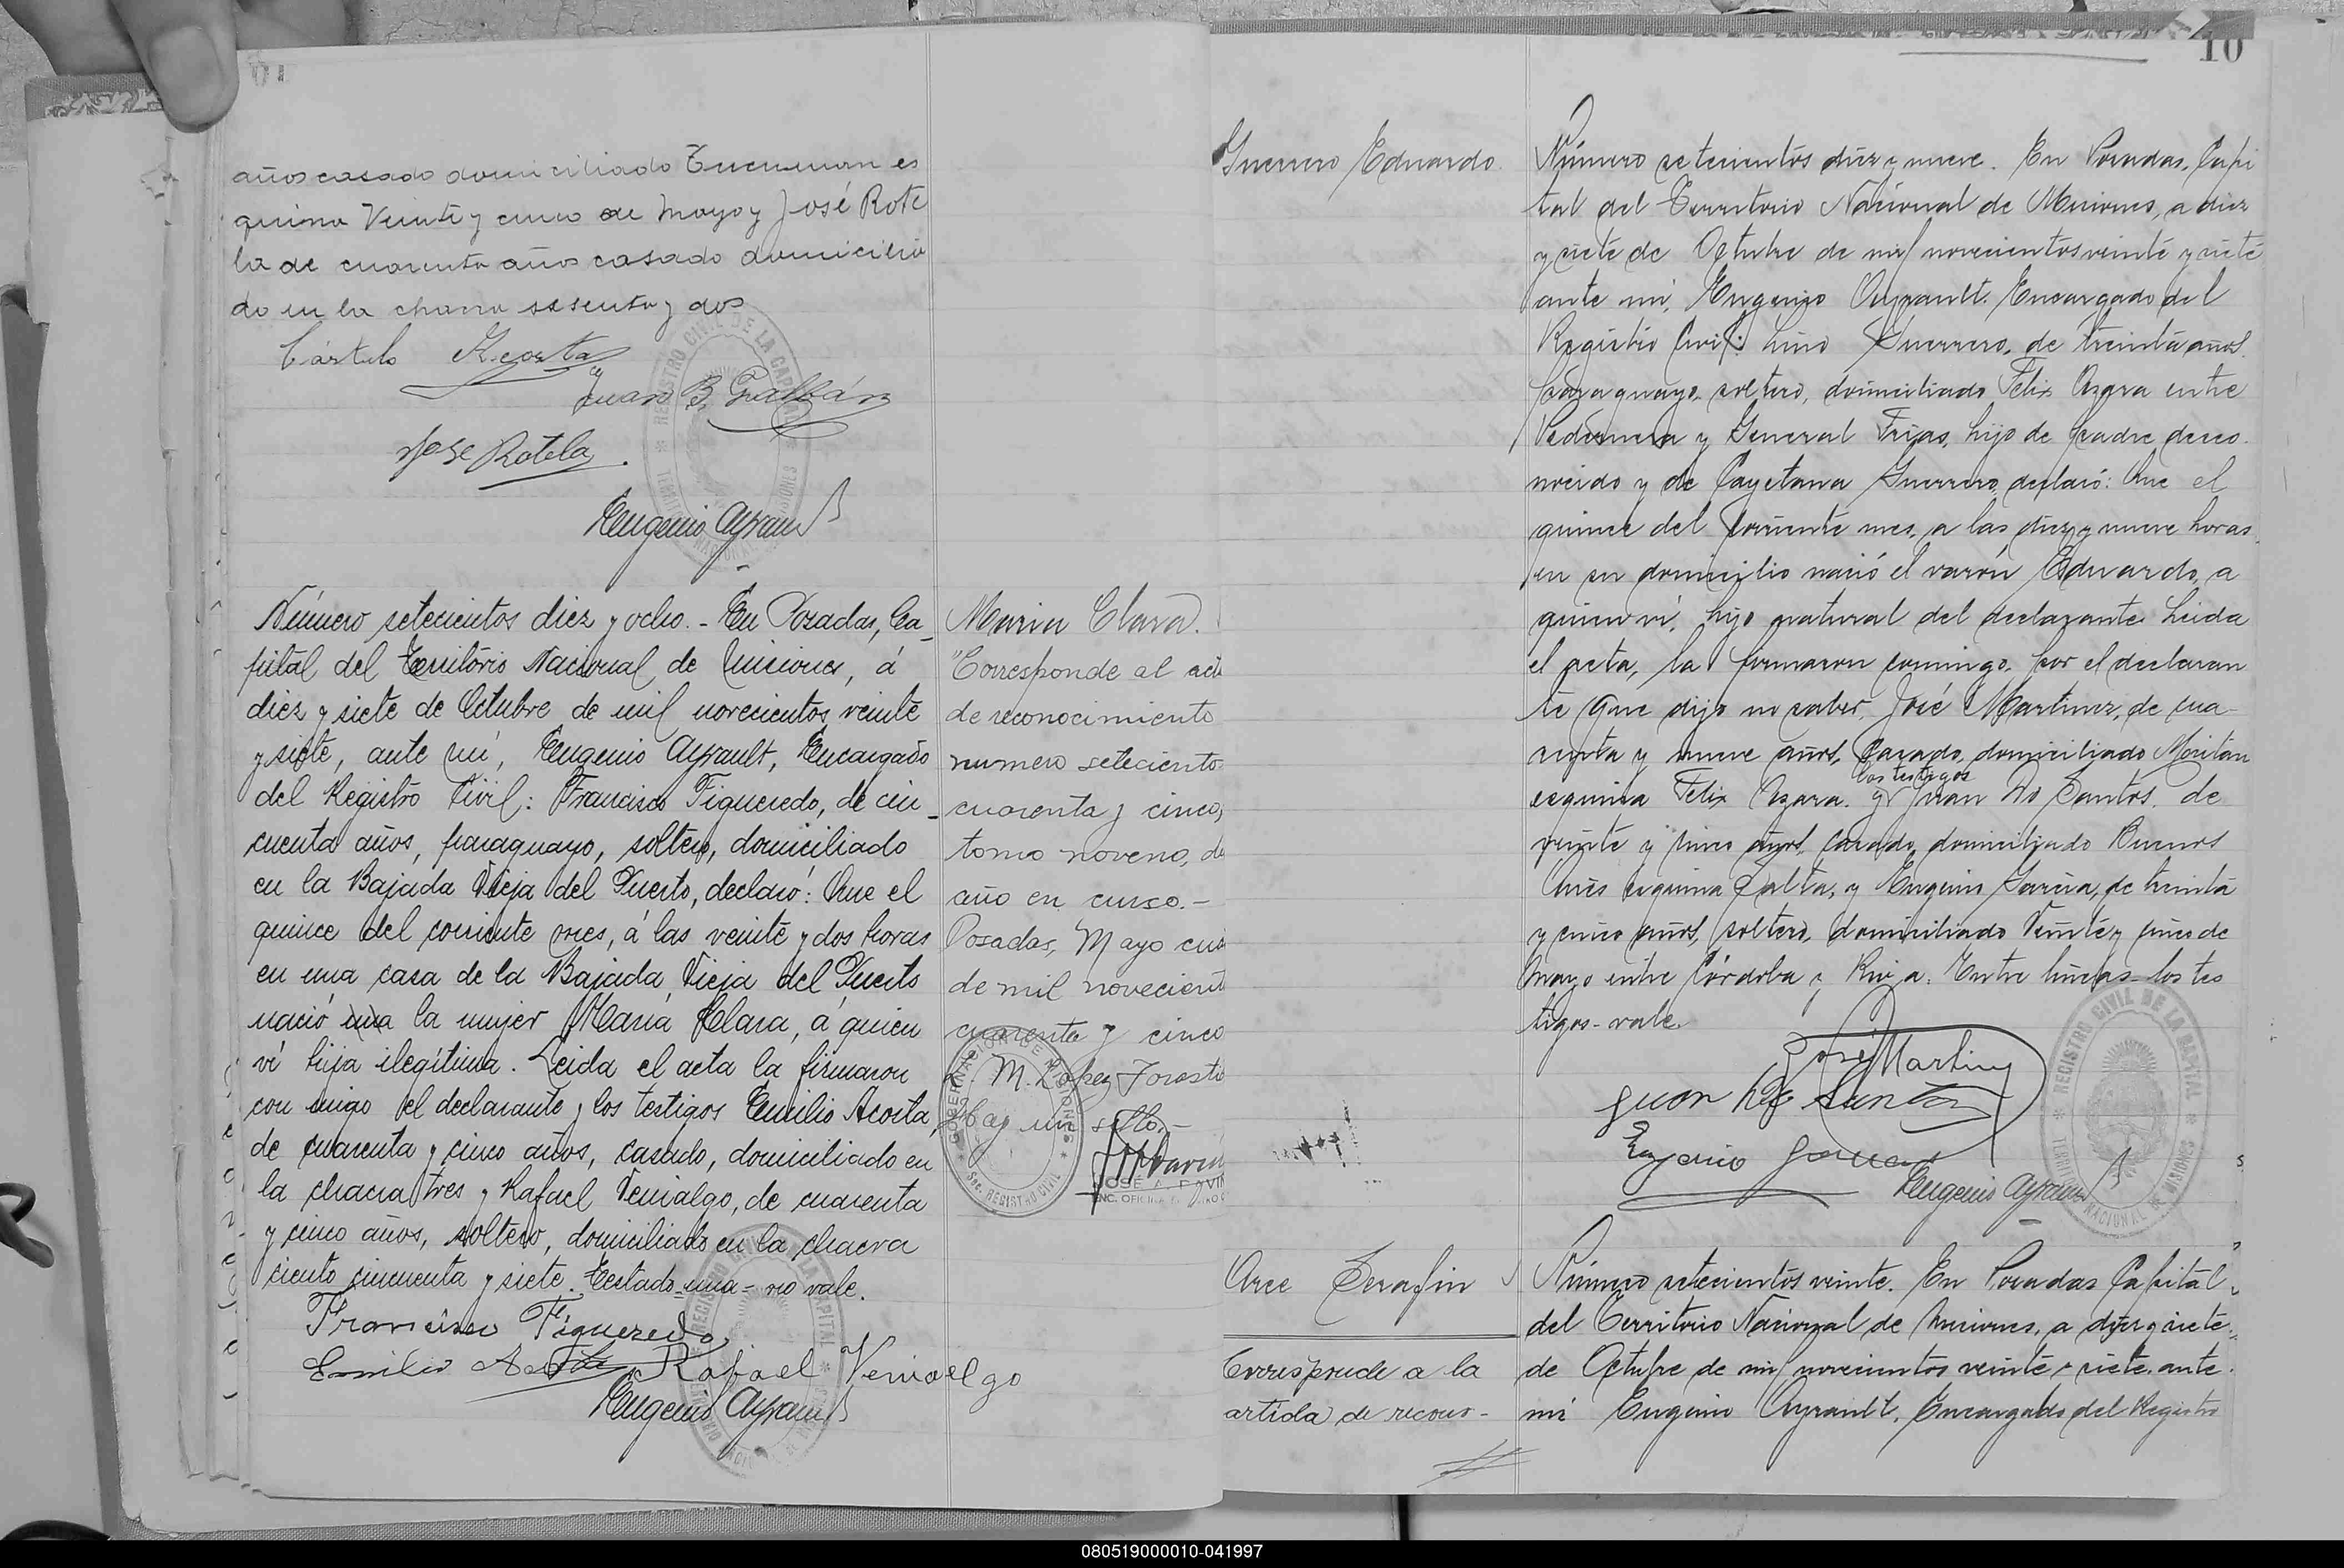 años casado domiciliado Tucuman es
quina Veinte y cinco de Mayo y José Rote
la de cuarenta años casado domicilia
do en la chacra sesenta y dos
Cástulo Acosta
Juan B. Galbán
Jose Rotela
Eugenio Ayrault
Número setecientos diez y ocho. - En Posadas, Ca-
pital del Territorio Nacional de Misiones, á
diez y siete de Octubre de mil novecientos veinte
y siete, ante mí, Eugenio Ayrault, Encargado
del Registro Civil: Francisco Figueredo, de cin-
cuenta años, paraguayo, soltero, domiciliado
en la Bajada Vieja del Puerto, declaró: Que el
quince del corriente mes, á las veinte y dos horas
en una casa de la Bajada Vieja del Puerto
nació una la mujer María Clara, á quien
ví hija ilegítima. Leida el acta la firmaron
con migo el declarante y los testigos Emilio Acosta,
de cuarenta y cinco años, casado, domiciliado en
la chacra tres y Rafael Venialgo, de cuarenta
y cinco años, soltero, domiciliado en la chacra
ciento cincuenta y siete. Testado - una - no vale.
Francisco Figueredo
Emilio Acosta Rafael Venialgo
Eugenio Ayrault
Maria Clara.
"Corresponde al act
de reconocimiento
numero setecientos
cuarenta y cinco,
tomo noveno, de
año en curso.-
Posadas, Mayo cua
de mil novecient
cuarenta y cinco
M. Lopez Foresti
Hay un sello.-
GOBERNACION DE MISIONES
Sec. REGISTRO CIVIL
JOSÉ A.
10
Guerrero Eduardo.
Número setecientos diez y nueve. En Posadas, Capi
tal del Territorio Nacional de Misiones, a diez
y siete de Octubre de mil novecientos veinte y siete
ante mí, Eugenio Ayrault. Encargado del
Registro Civil: Lino Guerrero, de treinta años
paraguayo, soltero, domiciliado Felix Azara entre
Pedernera y General Frias, hijo de padre desco-
nocido y de Cayetana Guerrero, declaró: Que el
quince del corriente mes, a las diez y nueve horas
en su domicilio nació el varón Eduardo, a
quien ví, hijo natural del declarante. Leida
el acta, la firmaron conmigo, por el declaran
te que dijo no saber, José Martinez, de cua-
renta y nueve años, casado, domiciliado Moritan
los testigos
esquina Felix Azara. y Juan Do Santos, de
veinte y cinco años, casado, domiciliado Buenos
Aires esquina Salta, y Eugenio Garcia, de treinta
y cinco años, soltero, domiciliado Veinte y cinco de
Mayo entre Córdoba y Rioja. Entre líneas - los tes
tigos - vale.
José Martinez
Juan Do Santos
Eugenio Garcia
Eugenio Ayrault
REGISTRO CIVIL DE LA CAPITAL
TERRITORIO NACIONAL DE MISIONES
Arce Serafin
Corresponde a la
artida de recono-
Número setecientos veinte. En Posadas Capital
del Territorio Nacional de Misiones, a diez y siete
de Octubre de mil novecientos veinte y siete, ante
mí Eugenio Ayrault, Encargado del Registro
080519000010-041997